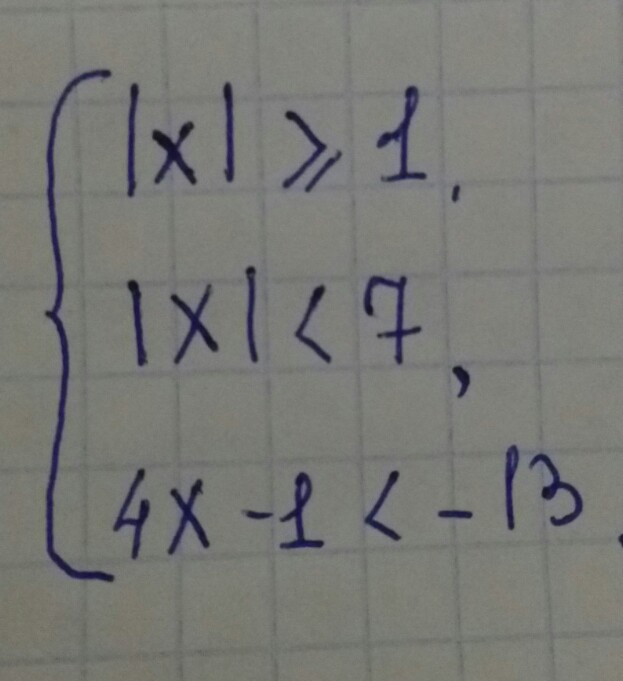 |x| ⩾ 1,
|x| < 7,
4x - 1 < - 13.